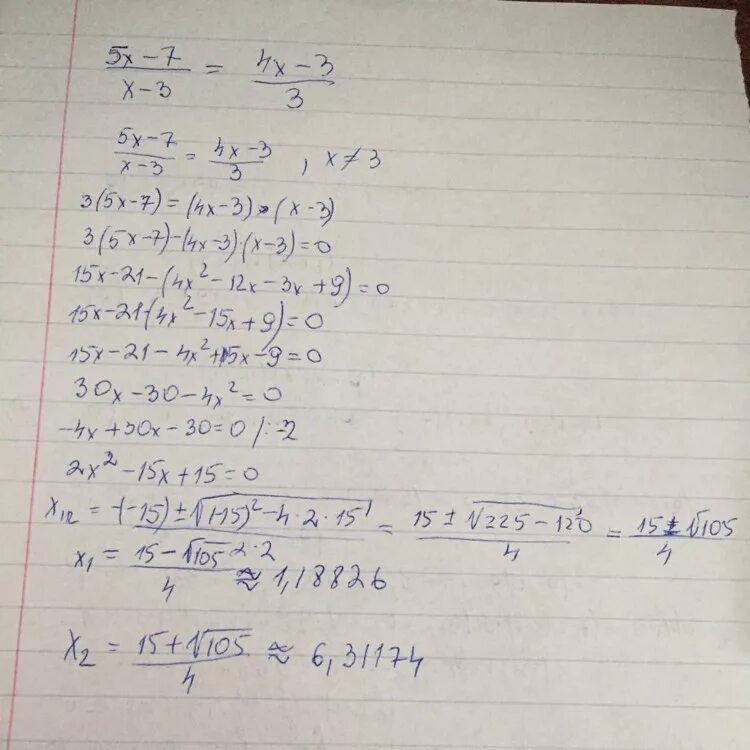 (5x-7)/(x-3) = (4x-3)/3
(5x-7)/(x-3) = (4x-3)/3 , x≠3
3(5x-7)=(4x-3)·(x-3)
3(5x-7)-(4x-3)·(x-3)=0
15x-21-(4x²-12x-3x+9)=0
15x-21-(4x²-15x+9)=0
15x-21-4x²+15x-9=0
30x-30-4x²=0
-4x+30x-30=0 /:-2
2x²-15x+15=0
x₁,₂ = (-(-15)±√((-15)²-4·2·15))/(2·2) = (15±√(225-120))/4 = (15±√105)/4
x₁ = (15-√105)/4 ≈ 1,18826
x₂ = (15+√105)/4 ≈ 6,31174